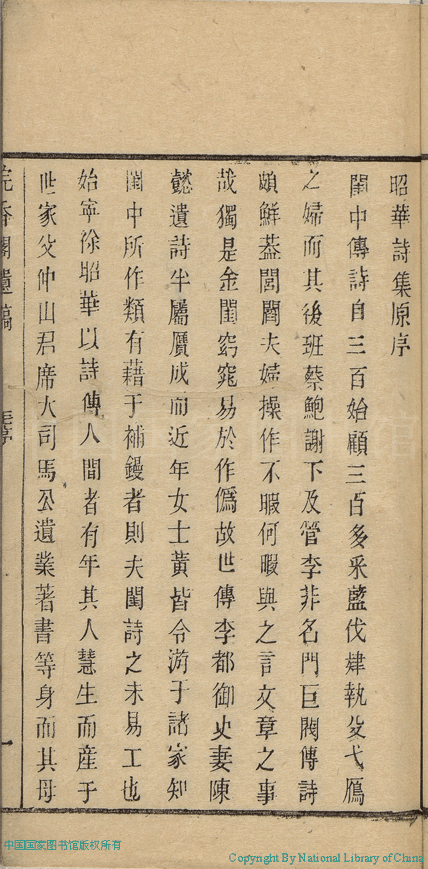 昭華詩集原序
閨中傳詩自三百始顧三百多采藍伐肄執殳弋鴈
之婦而其後班蔡鮑謝下及管李非名門巨閥傳詩
頗鮮葢閭閻夫婦操作不暇何暇與之言文章之事
哉獨是金閨窈窕易於作僞故世傳李都御史妻陳
懿遺詩半屬贗成而近年女士黃皆令游于諸家知
閨中所作類有藉于補鏝者則夫閨詩之未易工也
始寧徐昭華以詩傳人間者有年其人慧生而産于
世家父仲山君席大司馬公遺業著書等身而其母
香閣遺稿 序 一
中国国家图书馆版权所有
Copyright By National Library of China